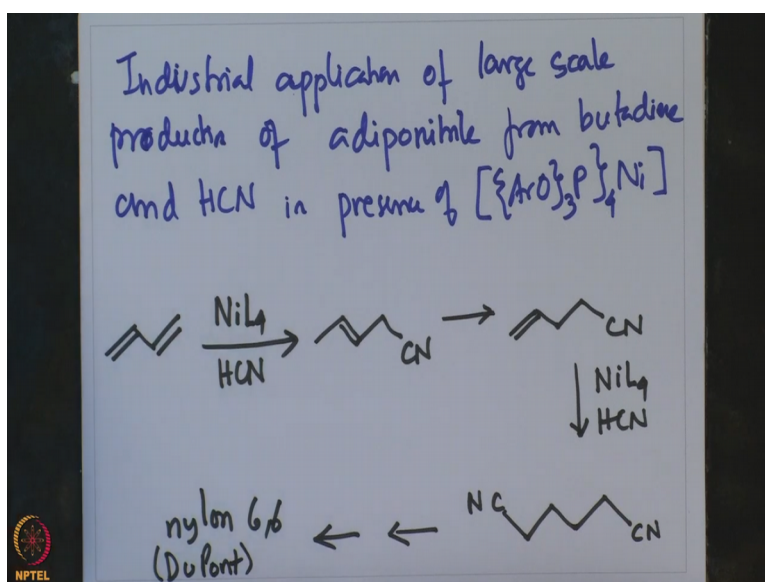 Industrial application of large scale
production of adiponitrile from butadine
and HCN in presence of [{ArO}3P}4Ni]
NiL4
HCN
CN
CN
NiL4
HCN
NC
CN
nylon 6,6
(DuPont)
NPTEL